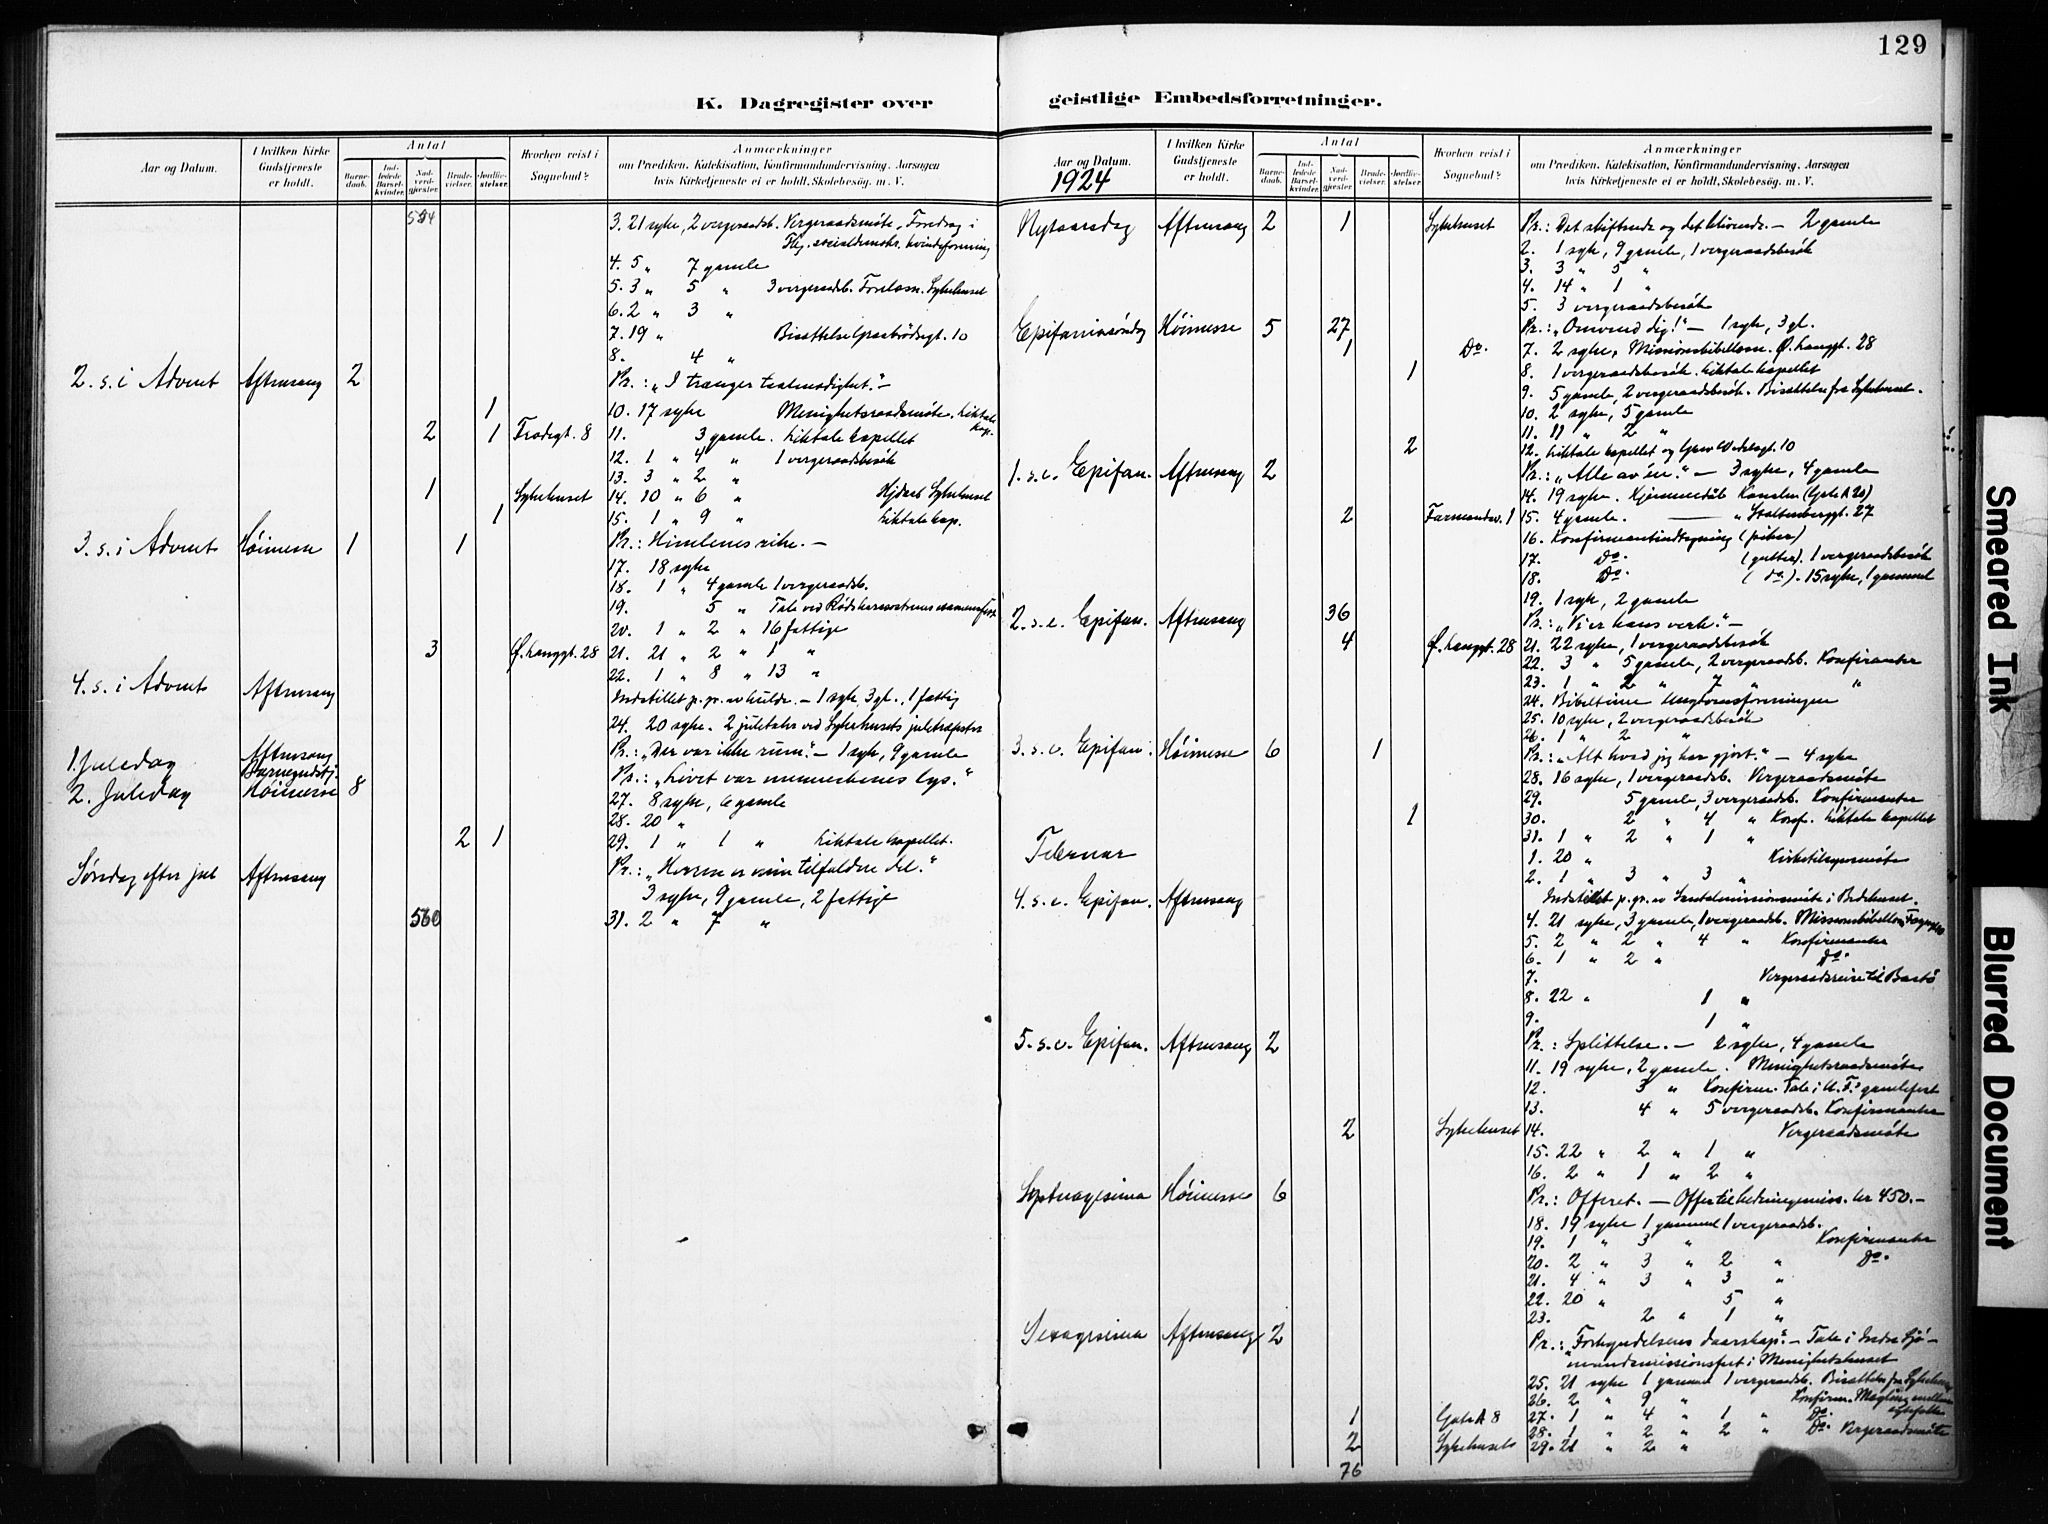 129
K. Dagregister over
geistlige Embedsforretninger.
Aar og Datum.
I hvilken Kirke Gudstjeneste er holdt.
Antal
Barnedaab.
Indledede Barselkvinder.
Nadverdgjester.
Brudevielser.
Jordfæstelser.
Hvorhen reist i Sognebud?
Anmærkninger
om Prædiken, Katekisation, Konfirmandundervisning, Aarsagen
hvis Kirketjeneste ei er holdt, Skolebesøg. m. V.
554 3. 21 syke, 2 vergeraadsb. Vergeraadsmöte. Foredrag i
socialdemokr. kvindeforening
4. 5 " 7 gamle
5. 3 " 5 " 3 vergeraadsb. Sykehuset
6. 2 " 3 "
7. 19 " Bisættelse Graabrødregt. 10
8. 4 "
2. s. i Advent Aftensang 2 Pr.: "I trænger taalmodighet." -
1 10. 17 syke Menighetsraadsmöte. Liktale kap.
2 1 Frodegt. 8 11. 3 gamle. Liktale kapellet
12. 1 " 4 " 1 vergeraadsbesök
13. 3 " 2 "
1 Sykehuset 14. 10 " 6 " Sykehuset
1 15. 1 " 9 " Liktale kap.
3. s. i Advent Höimesse 1 1 Pr.: Himlenes rike. -
17. 18 syke
18. 1 " 4 gamle 1 vergeraadsb.
19. 5 " Tale ved Rödekorssöstrenes
20. 1 " 2 " 16 fattige
3 Ø. Langgt. 28 21. 21 " 2 " 1 "
22. 1 " 8 " 13 "
4. s. i Advent Aftensang Indstillet p. gr. av kulde. - 1 syk, 3 gl., 1 fattig
24. 20 syke. 2 juletaler ved Sykehusets juletræfester
1. Juledag Aftensang Pr.: "Der var ikke rum." - 1 syk, 9 gamle
Barnegudstj.
2. Juledag Höimesse 8 Pr.: "Livet var menneskenes lys."
27. 8 syke, 6 gamle
28. 20 "
2 1 29. 1 " 1 " Liktale kapellet.
Söndag efter jul Aftensang Pr.: "Herren er min tilfaldne del."
3 syke, 9 gamle, 2 fattige
560 31. 2 " 7 "
Aar og Datum.
1924
I hvilken Kirke Gudstjeneste er holdt.
Antal
Barnedaab.
Indledede Barselkvinder.
Nadverdgjester.
Brudevielser.
Jordfæstelser.
Hvorhen reist i Sognebud?
Anmærkninger
om Prædiken, Katekisation, Konfirmandundervisning, Aarsagen
hvis Kirketjeneste ei er holdt, Skolebesøg. m. V.
Nytaarsdag Aftensang 2 1 Sykehuset Pr.: Det skiftende og det blivende. - 2 gamle
2. 1 syk, 9 gamle, 1 vergeraadsbesök
3. 3 " 5 "
4. 14 " 1 "
5. 3 vergeraadsbesök
Epifaniasöndag Höimesse 5 27 Pr.: "Omvend dig!" - 1 syk, 3 gl.
1 Do. 7. 2 syke, Missionsbibellæsn. Ø. Langgt. 28
1 8. 1 vergeraadsbesök. Liktale kapellet
9. 5 gamle, 2 vergeraadsbesök. Bisættelse fra Sykehuset.
10. 2 syke, 5 gamle
11. 11 " 2 "
2 12. Liktale kapellet og 10
1. s. e. Epifan. Aftensang 2 Pr.: "Alle av én." - 3 syke, 4 gamle
14. 19 syke. Hjemmedåb (Gate A 20)
2 Farmandsv. 1 15. 4 gamle. " Stoltenberggt. 27
16. Konfirmantindtegning (piker)
17. Do. (gutter). 1 vergeraadsbesök
18. Do. (do.). 15 syke, 1 gammel
19. 1 syk, 2 gamle
2. s. e. Epifan. Aftensang 36 Pr.: "Vi er hans verk." -
4 Ø. Langgt. 28 21. 22 syke, 1 vergeraadsbesök
22. 3 " 5 gamle, 2 vergeraadsb. Konfirmanter
23. 1 " 2 " 7 " "
24. Bibeltime Ungdomsforeningen
25. 10 syke, 2 vergeraadsbesök
26. 1 " 2 "
3. s. e. Epifan. Höimesse 6 1 Pr.: "Alt hvad jeg har gjort." - 4 syke
28. 16 syke, 1 vergeraadsb. Vergeraadsmöte
29. 5 gamle, 3 vergeraadsb. Konfirmanter
1 30. 2 " 4 " Konf. Liktale kapellet
31. 1 " 2 " 1 "
Februar 1. 20 " Kirketilsynsmöte
2. 1 " 3 " 3 "
4. s. e. Epifan. Aftensang Indstillet p. gr. av Santalmissionsmöte i Bedehuset.
4. 21 syke, 3 gamle, 1 vergeraadsb. Missionsbibellæsn.
5. 2 " 2 " 4 " Konfirmanter
6. 1 " 2 " Do.
7. Vergeraadsreise til Bastö
8. 22 " 1 "
9. 1 "
5. s. e. Epifan. Aftensang 2 Pr.: Splittelse. - 2 syke, 4 gamle
11. 19 syke, 2 gamle. Menighetsraadsmöte
12. 3 " Konfirm. Tale i U. F.s gamlefest
13. 4 " 5 vergeraadsb. Konfirmanter
2 Sykehuset 14. Vergeraadsmöte
15. 22 " 2 " 1 "
16. 2 " 1 " 2 "
Septuagesima Höimesse 6 Pr.: Offeret. - Offer til hedningemiss. kr 450.-
18. 19 syke 1 gammel 1 vergeraadsb.
19. 1 " 3 " Konfirmanter
20. 2 " 3 " 2 " Do.
21. 4 " 3 " 3 "
22. 20 " 5 "
23. 2 " 1 "
Sexagesima Aftensang 2 Pr.: "Forkyndelsens daarskap." - Tale i Indre Sjö-
mandsmissionsfest i Menighetshuset
25. 21 syke 1 gammel 1 vergeraadsb. Bisættelse fra Sykehuset
26. 2 " 9 " Konfirm. Megling mellem egtefolk
1 Gate A 8 27. 1 " 4 " 1 " Do.
28. 1 " 2 " 2 " Do. Vergeraadsmöte
2 Sykehuset 29. 21 " 2 "
76
Smeared Ink
Blurred Document